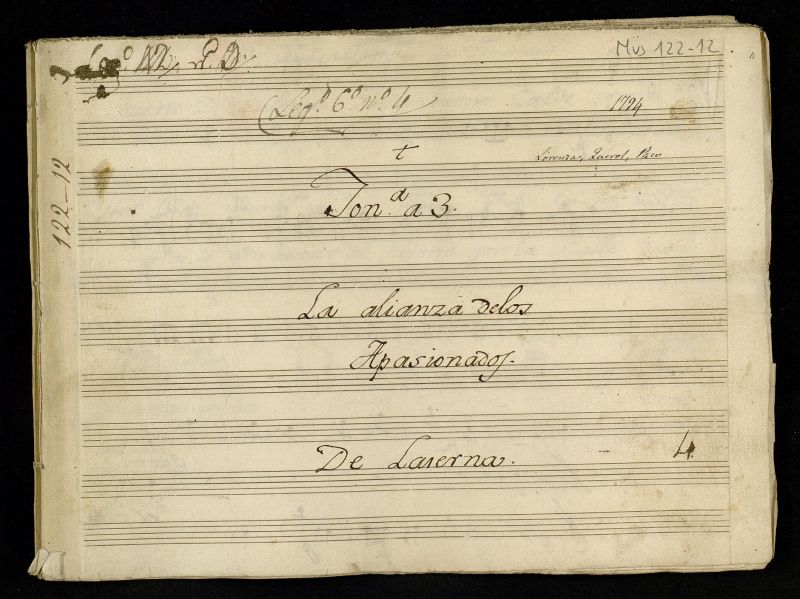 Mus 122-12
Leg.º 6.º nº 4
1794
Lorenza, Querol, Paco
122-12
Ton.d a 3.
La alianza delos
Apasionados.
De Laserna.
4.